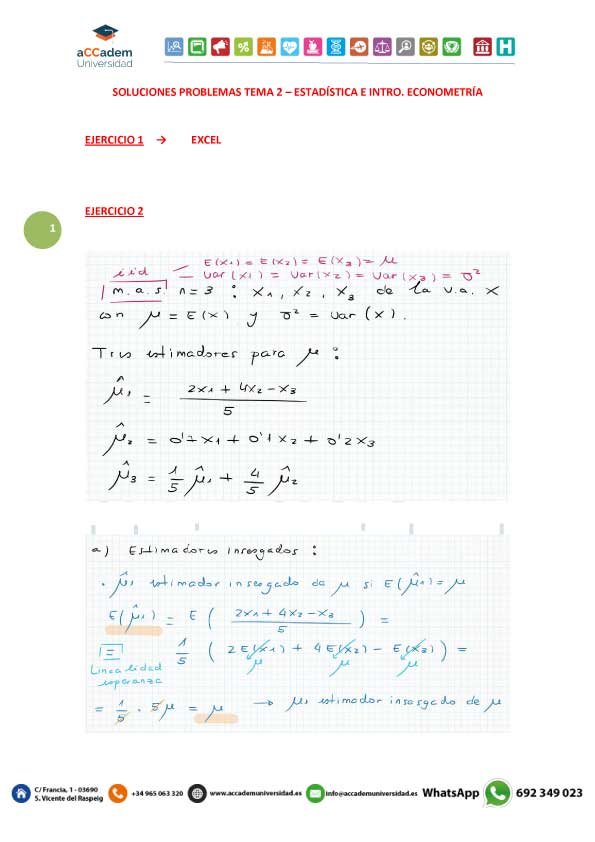 aCCadem
Universidad
SOLUCIONES PROBLEMAS TEMA 2 – ESTADÍSTICA E INTRO. ECONOMETRÍA
EJERCICIO 1 → EXCEL
EJERCICIO 2
1
iid E(x1) = E(x2) = E(x3) = μ
Var(x1) = Var(x2) = Var(x3) = σ²
m.a.s. n=3 : x1, x2, x3 de la v.a. X
con μ = E(x) y σ² = Var(x).
Tres estimadores para μ :
μ̂1 = (2x1 + 4x2 - x3) / 5
μ̂2 = 0'7x1 + 0'1x2 + 0'2x3
μ̂3 = 1/5 μ̂1 + 4/5 μ̂2
a) Estimadores insesgados :
· μ̂1 estimador insesgado de μ si E(μ̂1) = μ
E(μ̂1) = E ( (2x1 + 4x2 - x3) / 5 ) =
= 1/5 ( 2E(x1) + 4E(x2) - E(x3) ) =
μ μ μ
Linealidad
esperanza
= 1/5 · 5μ = μ → μ̂1 estimador insesgado de μ
C/ Francia, 1 - 03690
S. Vicente del Raspeig
+34 965 063 320
www.accademuniversidad.es
info@accademuniversidad.es
WhatsApp
692 349 023